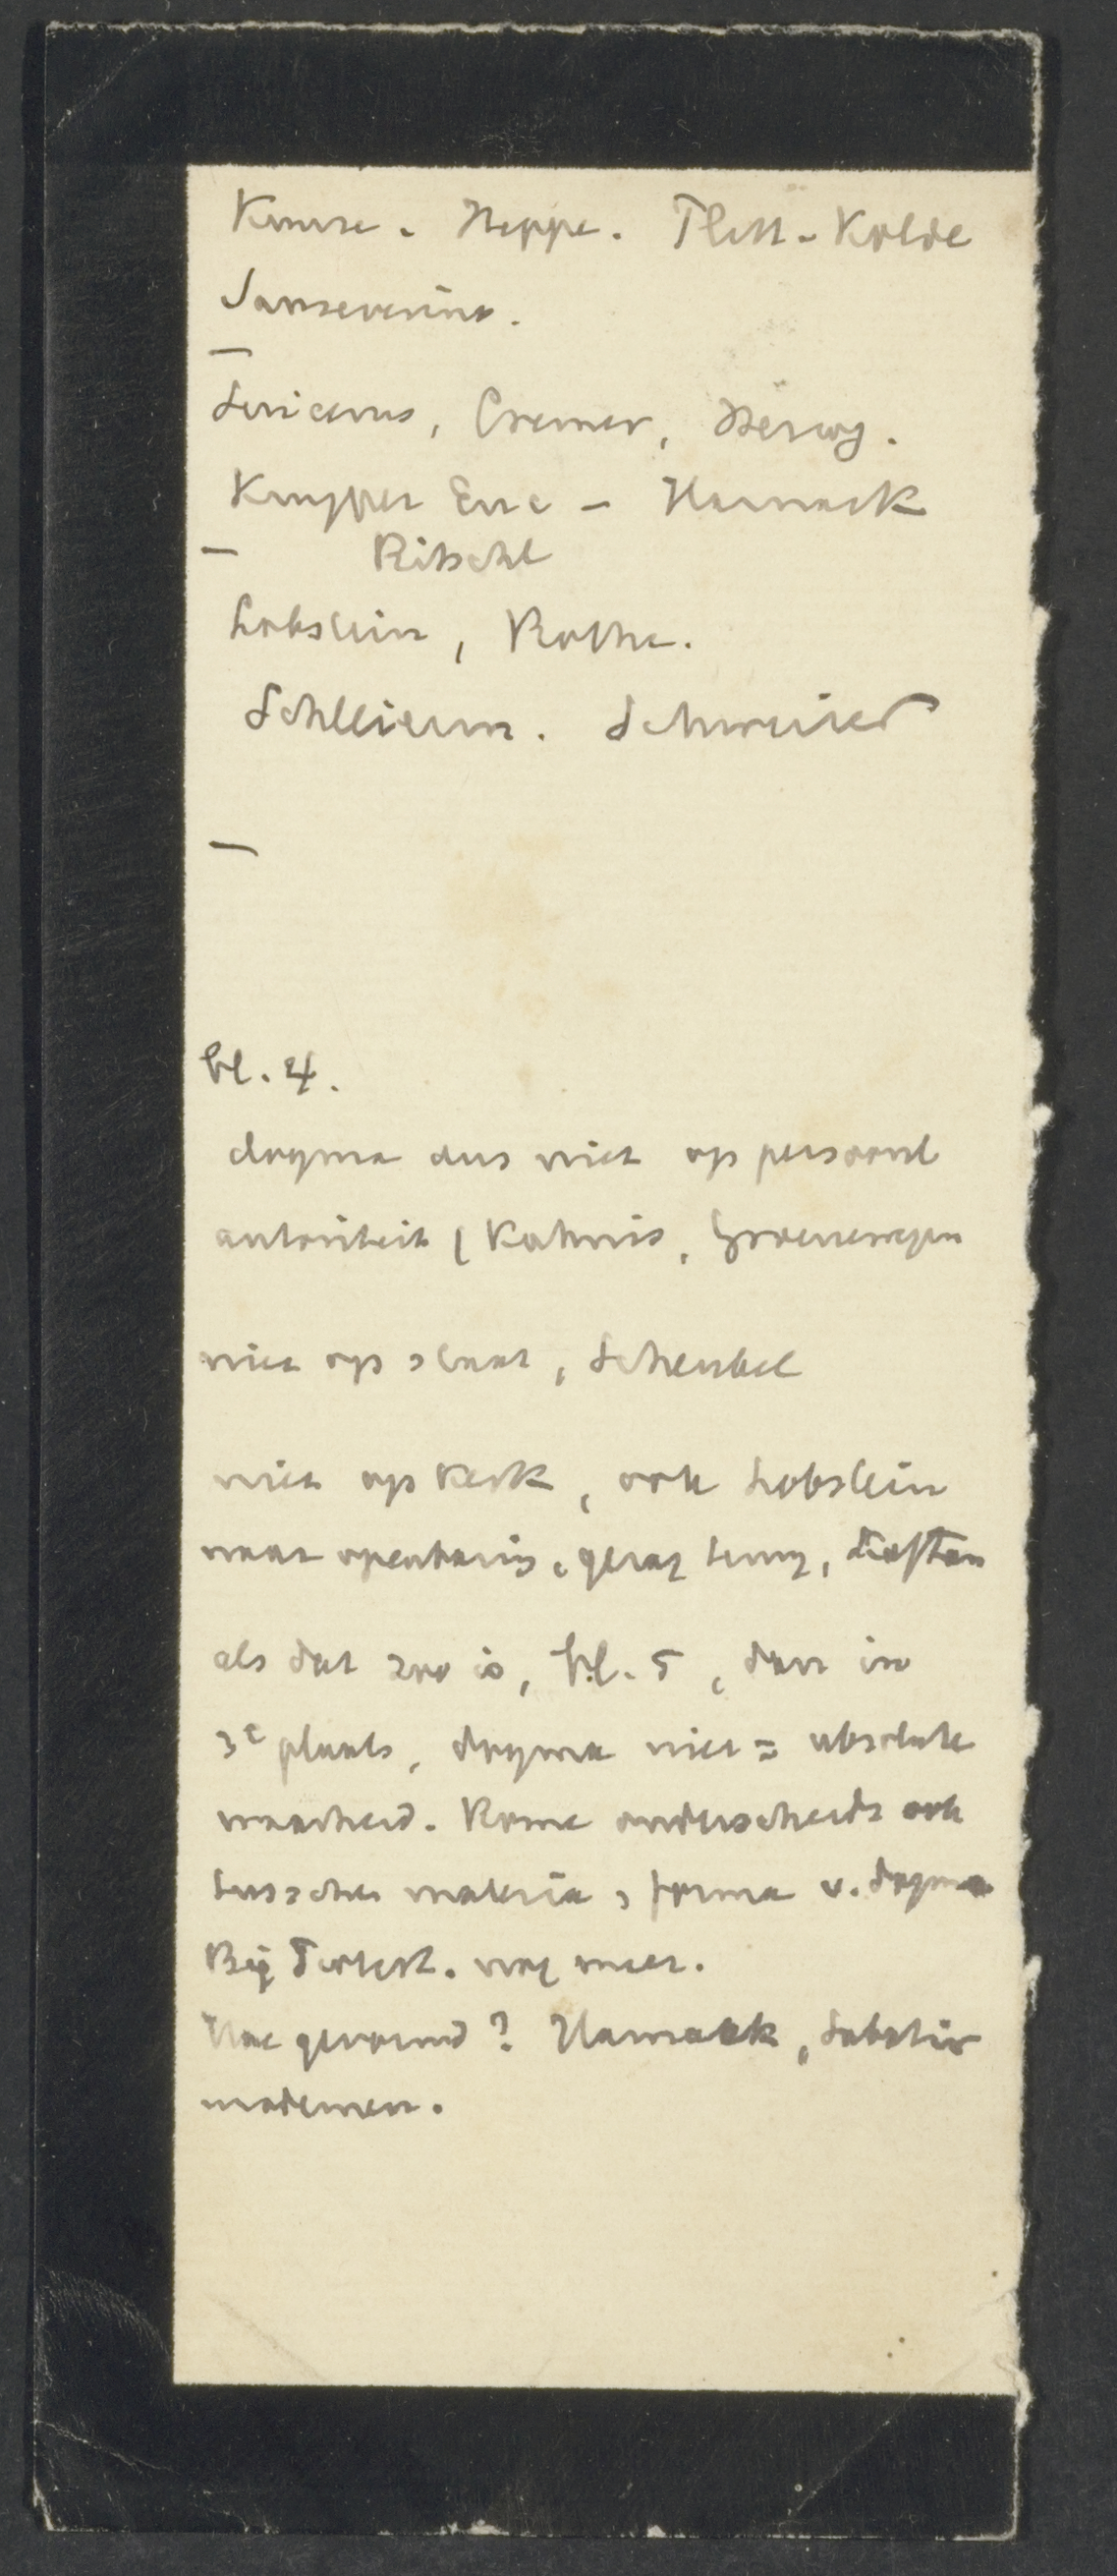 Krause. Heppe. Plitt-Kolde
Sanseverino.
–
Suicerus, Cremer, Herzog.
Kuyper Enc – Harnack
– Ritschl
Lobstein, Rothe.
Schleierm. Schweizer
–
bl. 4.
dogma dus niet op persoonl
autoriteit ( Kahnis, Groenewegen
niet op staat, Schenkel
niet op kerk, ook Lobstein
maar openbaring, gezag
als dat zoo is, bl. 5, dan in
3e plaats, dogma niet = absolute
waarheid. Rome onderscheidt ook
tusschen materia, forma v. dogma
Bij Protest. nog meer.
Hoe gevormd? Harnack, Sabatier
modernen.